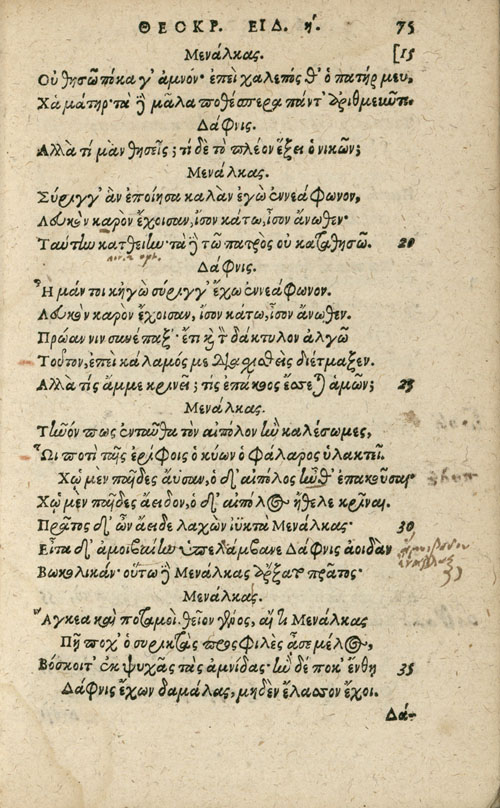 ΘΕΟΚΡ. ΕΙΔ. ή. 75
Μενάλκας. [15
Οὐ θησῶ πόκα γ' ἀμνόν· ἐπεὶ χαλεπός θ' ὁ πατήρ μευ,
Χἀ μάτηρ· τὰ δὲ μᾶλα ποθέσπερα πάντ' ἀριθμεῦντι.
Δάφνις.
Ἀλλὰ τί μὰν θησεῖς; τί δὲ τὸ πλέον ἕξει ὁ νικῶν;
Μενάλκας.
Σύριγγ' ἃν ἐποίησα καλὰν ἐγὼ ἐννεάφωνον,
Λευκὸν καρὸν ἔχοισαν, ἶσον κάτω, ἶσον ἄνωθεν·
Ταύταν κατθείην· τὰ δὲ τῶ πατρὸς οὐ καταθησῶ. 20
Δάφνις.
Ἦ μάν τοι κἠγὼ σύριγγ' ἔχω ἐννεάφωνον.
Λευκὸν καρὸν ἔχοισαν, ἶσον κάτω, ἶσον ἄνωθεν.
Πρώαν νιν συνέπαξ'· ἔτι καὶ τὸν δάκτυλον ἀλγῶ
Τοῦτον, ἐπεὶ κάλαμός με διασχισθεὶς διέτμαξεν.
Ἀλλὰ τίς ἄμμε κρινεῖ; τίς ἐπάκοος ἔσεται ἁμῶν; 25
Μενάλκας.
Τῆνόν πως ἐνταῦθα τὸν αἰπόλον ἢν καλέσωμες,
Ὧι ποτὶ ταῖς ἐρίφοις ὁ κύων ὁ φάλαρος ὑλακτεῖ.
Χᾠ μὲν παῖδες ἄυσαν, ὁ δ' αἰπόλος ἦνθ' ἐπακούσας
Χᾠ μὲν παῖδες ἄειδον, ὁ δ' αἰπόλος ἤθελε κρῖναι.
Πρᾶτος δ' ὦν ἄειδε λαχὼν ἰϋκτὰ Μενάλκας· 30
Εἶτα δ' ἀμοιβαίαν ὑπελάμβανε Δάφνις ἀοιδὰν
Βωκολικάν· οὕτω δὲ Μενάλκας ἄρξατο πρᾶτος·
Μενάλκας.
Ἄγκεα καὶ ποταμοὶ, θεῖον γένος, αἴ τι Μενάλκας
Πῆ ποχ' ὁ συρικτὰς προσφιλὲς ᾆσε μέλος,
Βόσκοιτ' ἐκ ψυχᾶς τὰς ἀμνίδας· ἢν δέ ποκ' ἔνθη 35
Δάφνις ἔχων δαμάλας, μηδὲν ἔλασσον ἔχοι.
Δά-